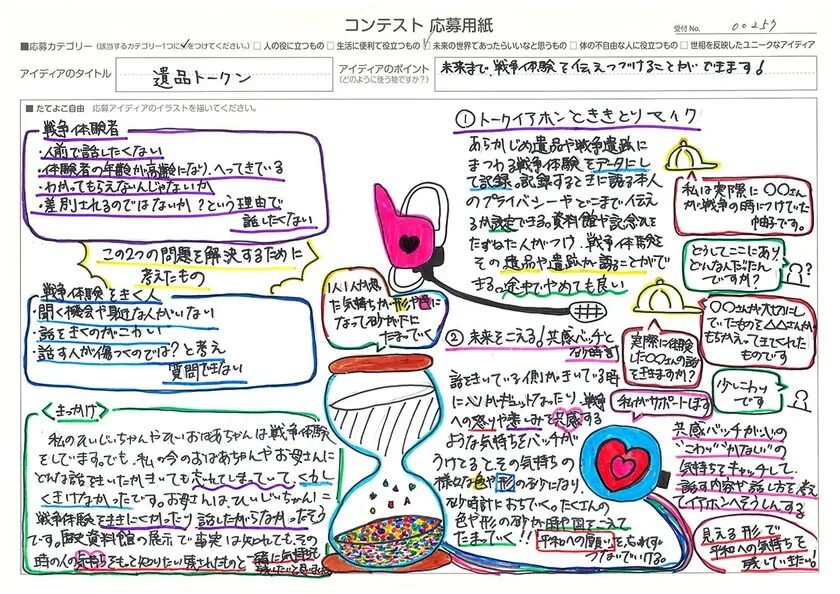 コンテスト 応募用紙
受付No. 00257
■応募カテゴリー（該当するカテゴリー1つに✓をつけてください。） □ 人の役に立つもの □ 生活に便利で役立つもの ☑ 未来の世界であったらいいなと思うもの □ 体の不自由な人に役立つもの □ 世相を反映したユニークなアイディア
アイディアのタイトル
遺品トークン
アイディアのポイント
（どのように使う物ですか？）
未来まで、戦争体験を伝えつづけることができます！
■ たてよこ自由 応募アイディアのイラストを描いてください。
戦争体験者
・人前で話したくない
・体験者の年齢が高齢になり、へってきている
・わかってもらえないんじゃないか
・差別されるのではないか？という理由で
話したくない
この2つの問題を解決するために
考えたもの
戦争体験をきく人
・聞く機会や身近な人がいない
・話をきくのがこわい
・話す人が傷つくのでは？と考え
質問できない
〈きっかけ〉
私のひいじいちゃんやひいおばあちゃんは戦争体験
をしています。でも、私の今のおばあちゃんやお母さんに
どんな話をきいたかきいても忘れてしまっていて、くわしく
きけなかったです。お母さんはひいじいちゃんに
戦争体験をききにくかったり話したがらなかったそう
です。歴史資料館の展示で事実は知れても、その
時の人の気持ちをもっと知りたい
1人1人が思っ
た気持ちが形や色に
なって砂がたに
たまっていく
①トークイアホンとききとりマイク
あらかじめ遺品や戦争遺跡に
まつわる戦争体験をデータにし
て記録。記録するときに語る本人
のプライバシーやどこまで伝え
るか設定できる。資料館や記念公を
たずねた人がつけ、戦争体験を
その遺品や遺跡が語ることがで
きる。途中でやめても良い
私は実際に〇〇さん
が戦争の時につけていた
帽子です。
どうしてここにあり、
どんなんだったん
ですか？
〇〇さんが大切にし
ていたものを△△さんが
もちかえってきてくれた
ものです
実際に体験
した〇〇さんの話
をききますか？
少しこわい
です
私がサポートします
②未来をこえる！共感バッチと
砂時計
話をきいている側がきいている時
に心がギュッとなったり、戦争
への怒りや悲しみを共感する
ような気持ちをバッチが
うけとるとその気持ちの
様々な色や形の砂になり、
砂時計におちていく。たくさんの
色や形の砂が時や国をこえて
たまっていく！！
平和への願いを忘れず
つなげていける。
共感バッチが心の
"こわい""かなしい"の
気持ちをキャッチして、
話す内容や話し方を考え
てイアホンへそうしんする
見える形で
平和への気持ちを
残していきたい！